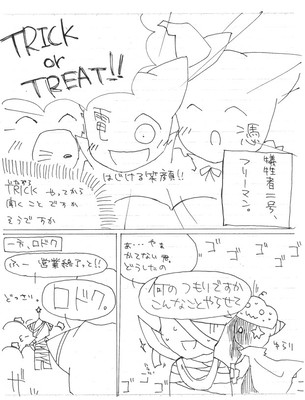 TRICK
or
TREAT!!
雷
憑
はじける笑顔!!
犠牲者二号、
フリーマン。
TRICK やってから
聞くことですか
そうですか
一方、ロドク
ふー 営業終了っと!!
どっさい。
ロドク。
あ…やま
かぜない君、
どうしたの
何のつもりですか
こんなことやらせて
ゆらり
ゴゴゴゴ
ゴゴゴ